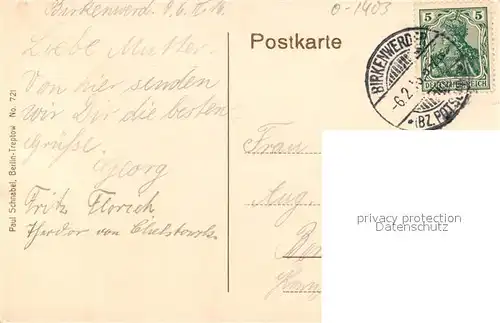 Birkenwerd.
0-1403
Liebe Mutter.
Von hier senden
wir Dir die besten
Grüße.
Georg
Fritz
Theodor von
Paul Schnabel, Berlin-Treptow No. 721
Postkarte
5 5
DEUTSCHES REICH
BIRKENWERDER
6.2.
*(BZ. POTSD
Frau
Aug.
privacy protection
Datenschutz